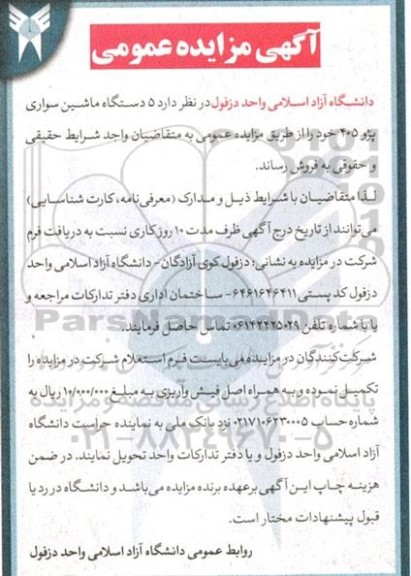 آگهی مزایده عمومی
دانشگاه آزاد اسلامی واحد دزفول در نظر دارد ۵ دستگاه ماشین سواری
پژو ۴۰۵ خود را از طریق مزایده عمومی به متقاضیان واجد شرایط حقیقی
و حقوقی به فروش رساند.
لذا متقاضیان با شرایط ذیل و مدارک (معرفی نامه، کارت شناسایی)
می توانند از تاریخ درج آگهی ظرف مدت ۱۰ روز کاری نسبت به دریافت فرم
شرکت در مزایده به نشانی: دزفول کوی آزادگان - دانشگاه آزاد اسلامی واحد
دزفول کد پستی ۶۴۶۱۶۴۶۴۱۱ - ساختمان اداری دفتر تدارکات مراجعه و
یا با شماره تلفن ۰۶۱۴۲۴۲۵۰۲۹ تماس حاصل فرمایند.
شرکت کنندگان در مزایده می بایست فرم استعلام شرکت در مزایده را
تکمیل نموده و به همراه اصل فیش واریزی به مبلغ ۱۰/۰۰۰/۰۰۰ ریال به
شماره حساب ۰۲۱۷۱۰۶۲۳۰۰۰۵ نزد بانک ملی به نماینده حراست دانشگاه
آزاد اسلامی واحد دزفول و یا دفتر تدارکات واحد تحویل نمایند. در ضمن
هزینه چاپ این آگهی بر عهده برنده مزایده می باشد و دانشگاه در رد یا
قبول پیشنهادات مختار است.
روابط عمومی دانشگاه آزاد اسلامی واحد دزفول
ParsNamadData
پایگاه اطلاع رسانی مناقصه و مزایده
۰۲۱-۸۸۳۴۹۶۷۰-۵